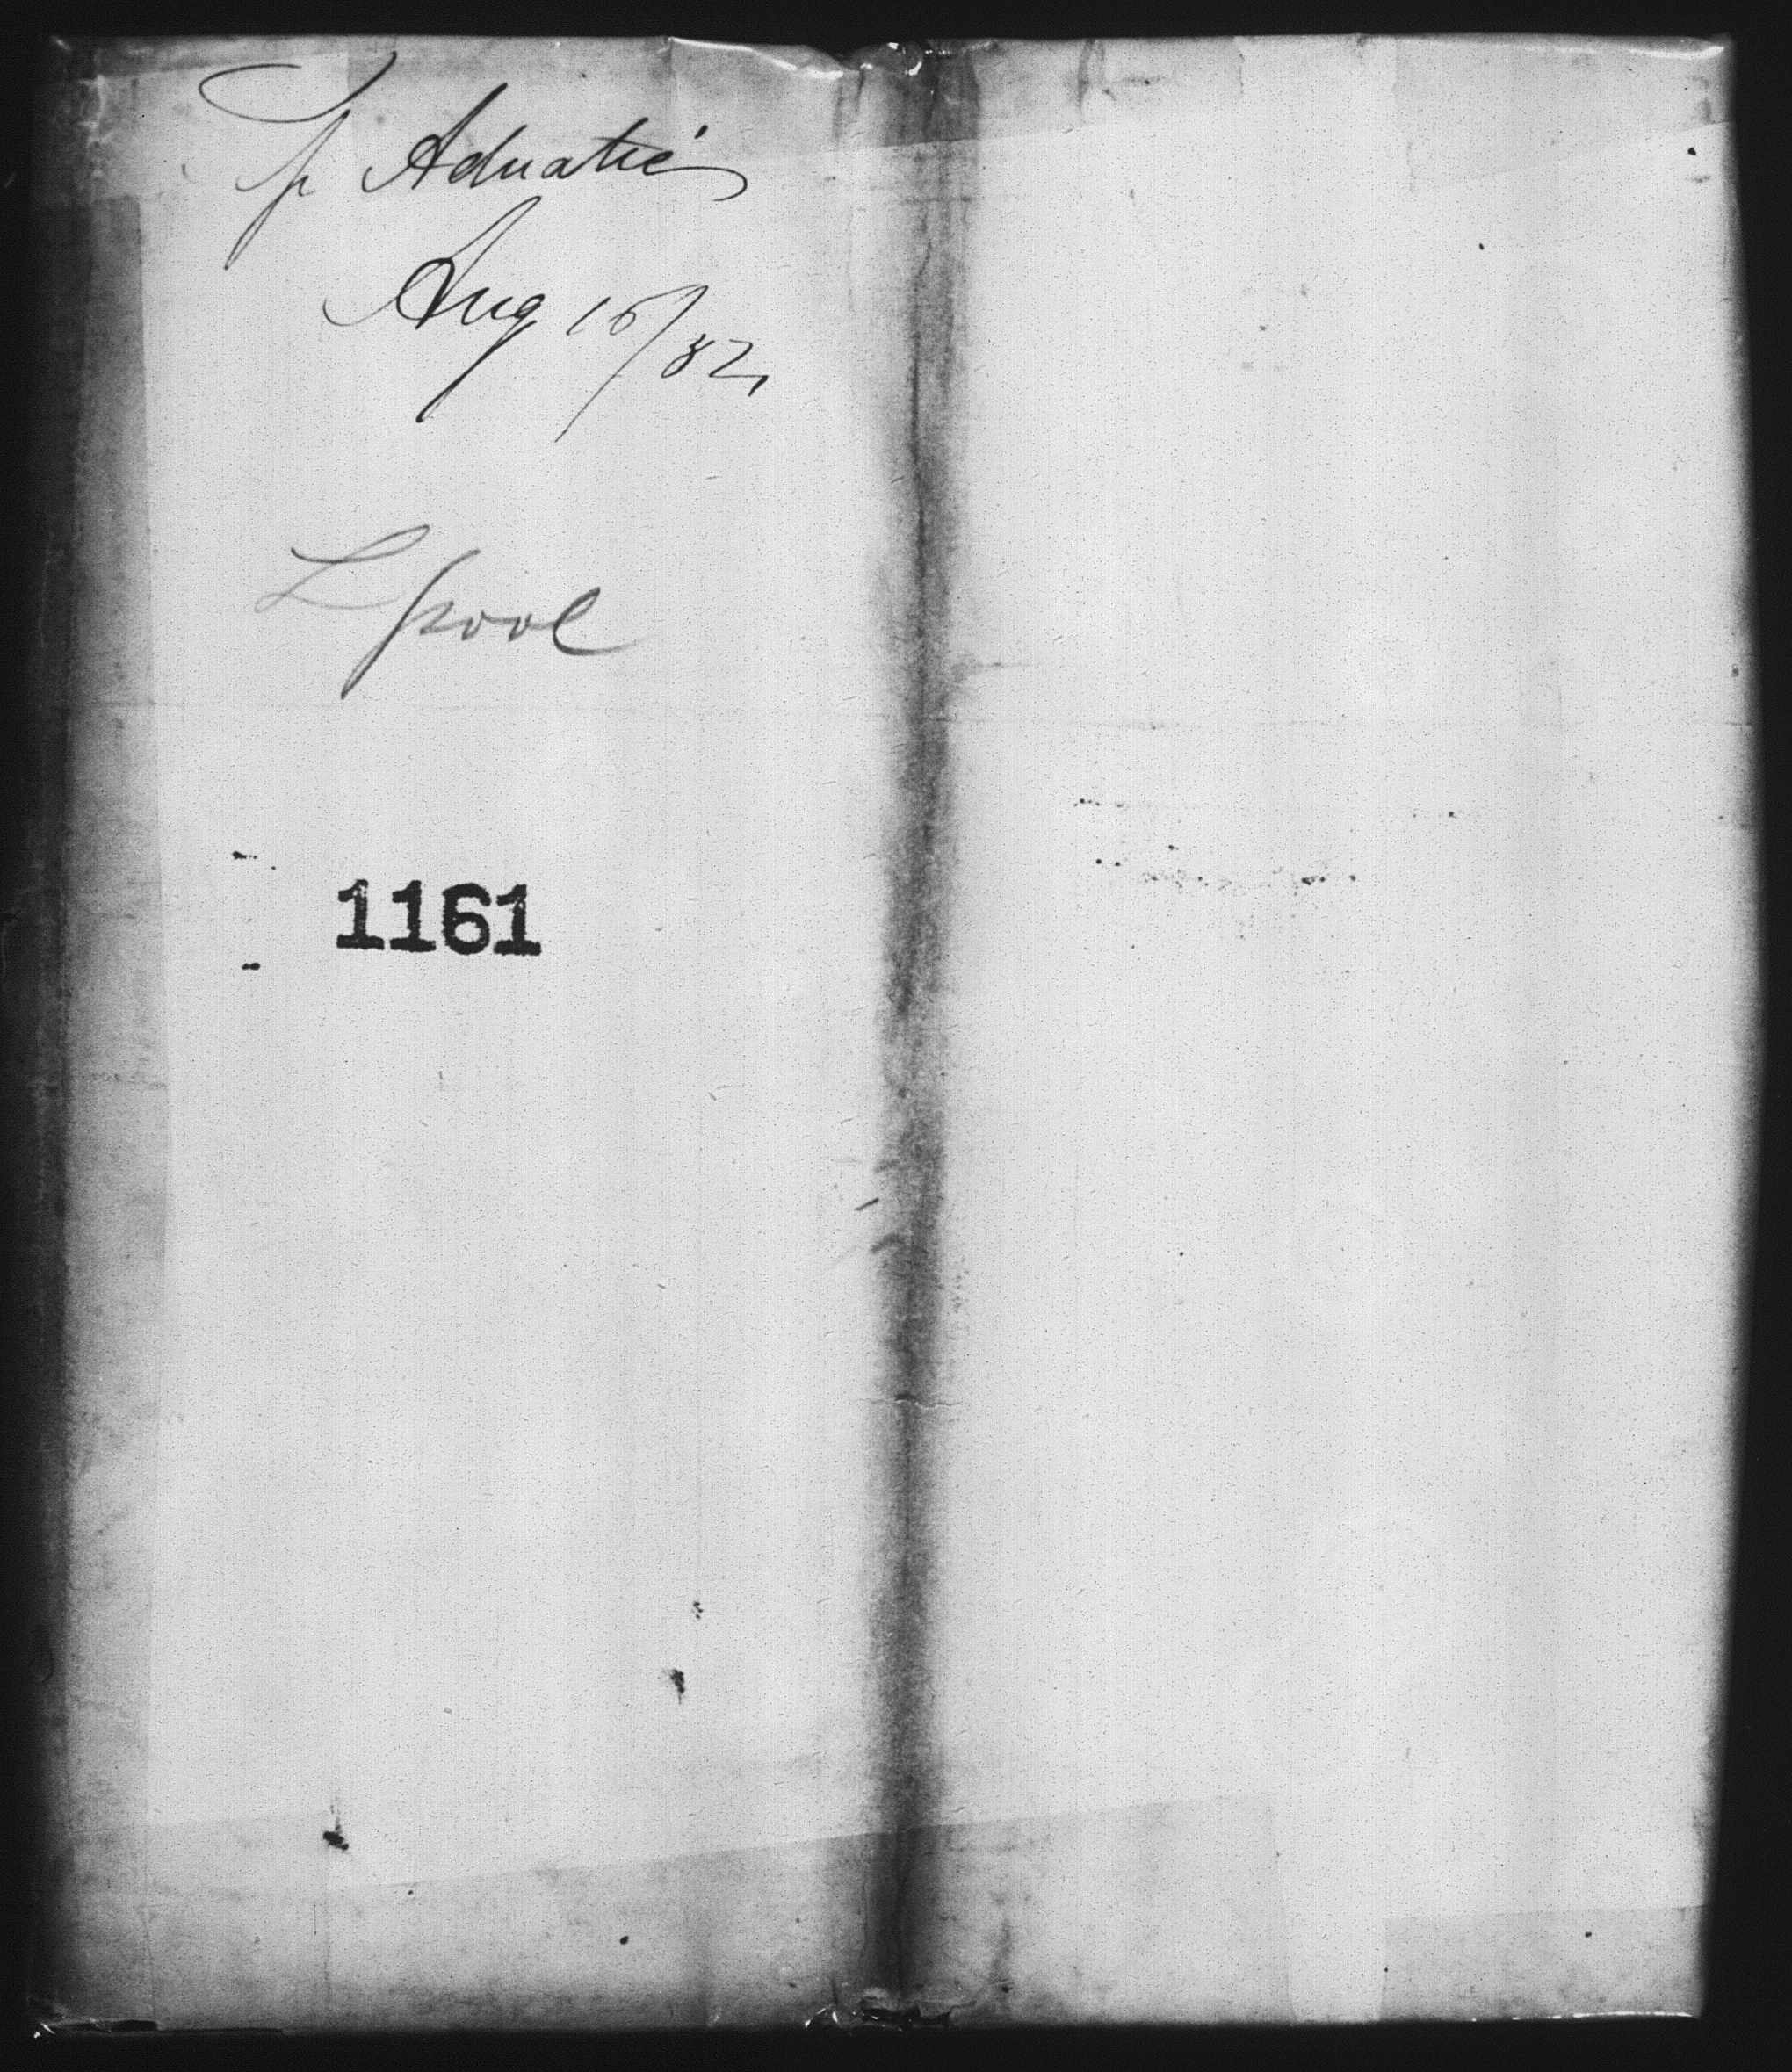 Sp Adriatic
Aug 15/82,
Lpool
1161